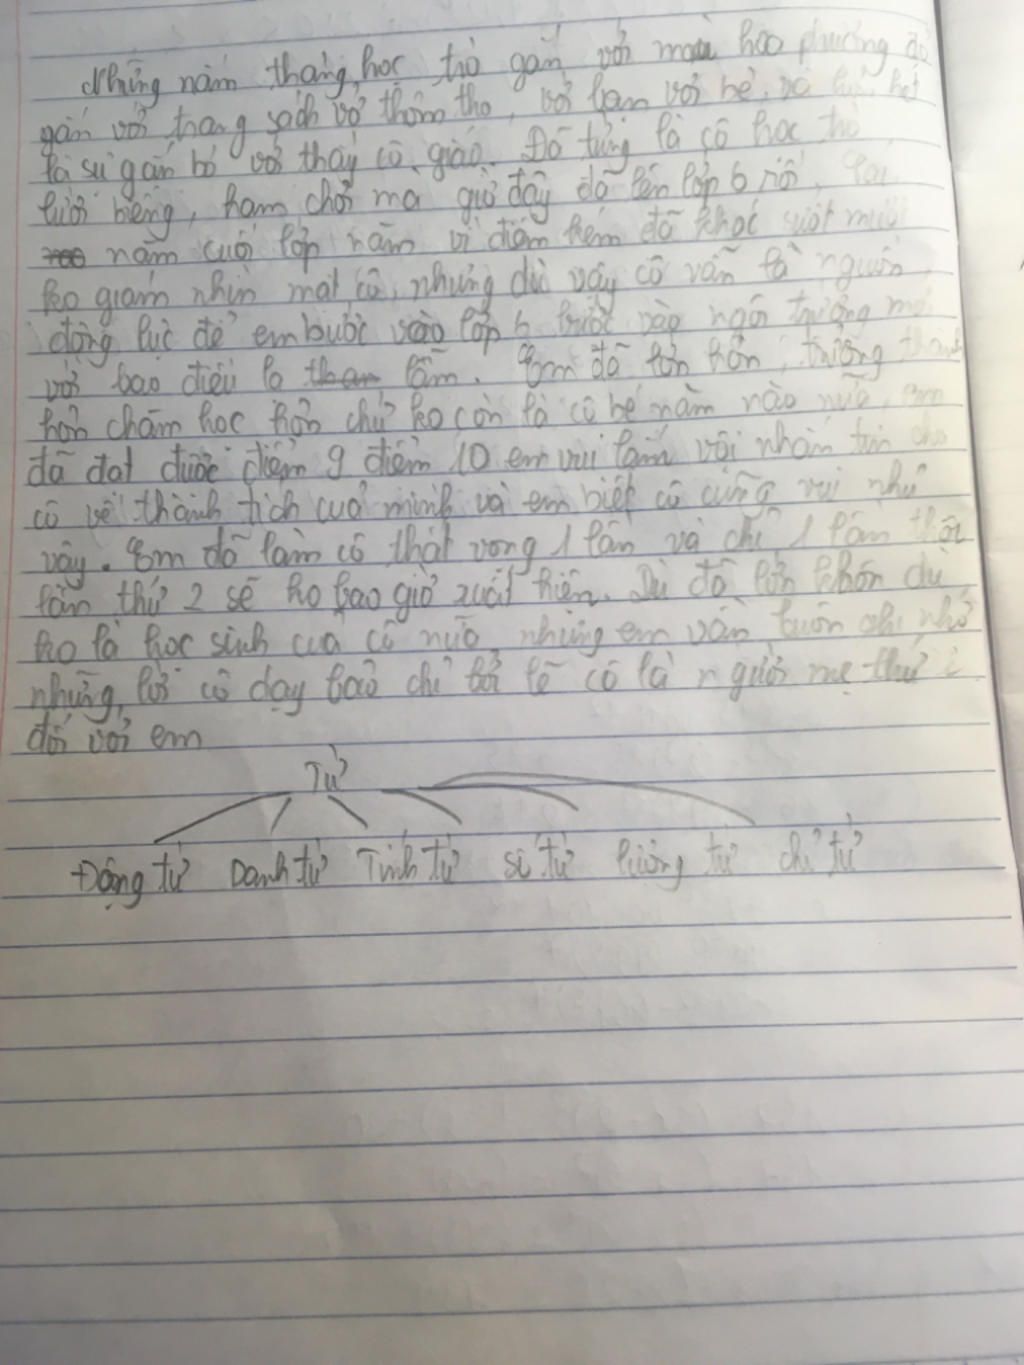 Những năm tháng học trò gắn với màu hoa phượng đỏ
gắn với trang sách vở thơm tho, với bạn với bè, và hết
là sự gắn bó với thầy cô giáo. Đã từng là cô học trò
lười biếng, ham chơi mà giờ đây đã lên lớp 6 rồi,
năm cuối lớp năm vì điểm kém đã khóc suốt
ko giám nhìn mặt cô, nhưng dù vậy cô vẫn là nguồn
động lực để em bước vào lớp 6 bước vào ngôi trường
với bao điều lạ lẫm. Em đã lớn hơn, trưởng thành
hơn chăm học hơn chứ ko còn là cô bé năm nào nữa, em
đã đạt được điểm 9 điểm 10 em vui lắm vội nhắn tin cho
cô về thành tích của mình và em biết cô cũng vui như
vậy. Em đã làm cô thất vọng 1 lần và chỉ 1 lần thôi
lần thứ 2 sẽ ko bao giờ xuất hiện. Dù đã lớn khôn dù
ko là học sinh của cô nữa nhưng em vẫn luôn ghi nhớ
những lời cô dạy bảo chỉ bởi lẽ cô là người mẹ thứ 2
đối với em
Từ
Động từ Danh từ Tính từ số từ lượng từ chỉ từ